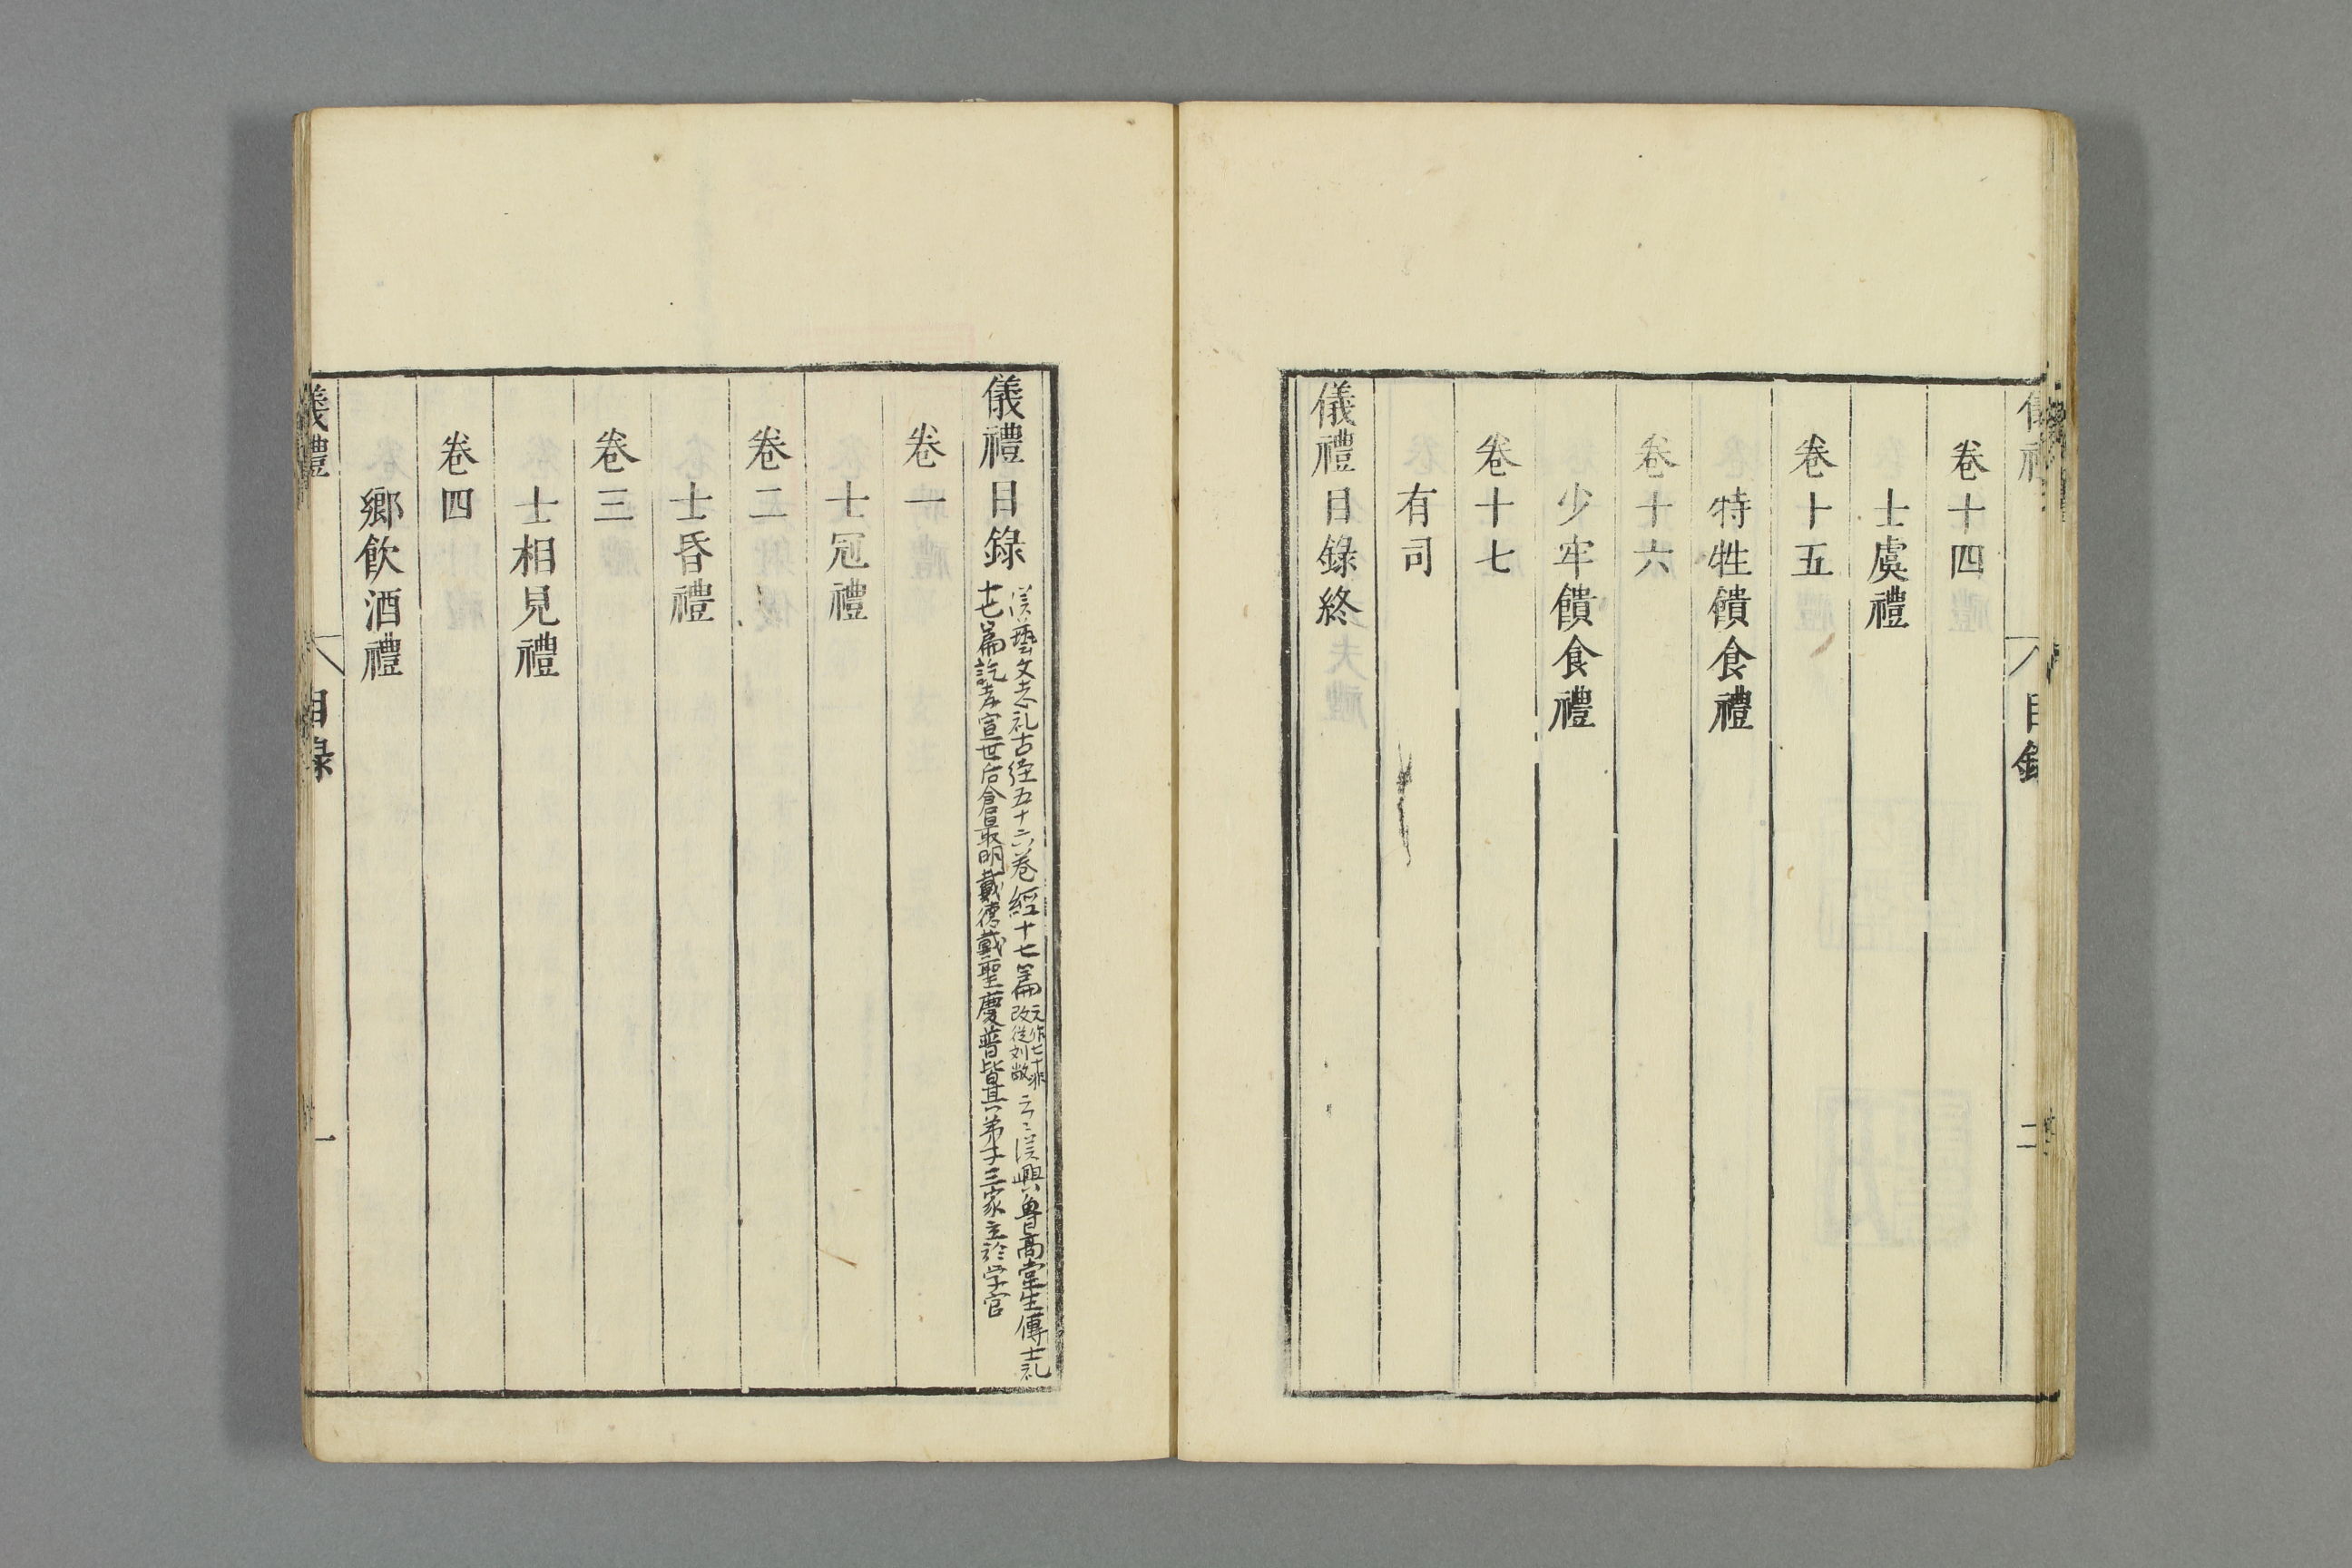 卷十四
士虞禮
卷十五
特牲饋食禮
卷十六
少牢饋食禮
卷十七
有司
儀禮目錄終
目錄
二
儀禮目錄
漢藝文志礼古経五十六巻經十七篇
元作七十非
改從刘敞
云〻漢興魯高堂生傳士礼
十七篇訖孝宣世后倉最明戴德戴聖慶普皆其弟子三家立於学官
卷一
士冠禮
卷二
士昏禮
卷三
士相見禮
卷四
鄉飲酒禮
儀禮
目錄
一